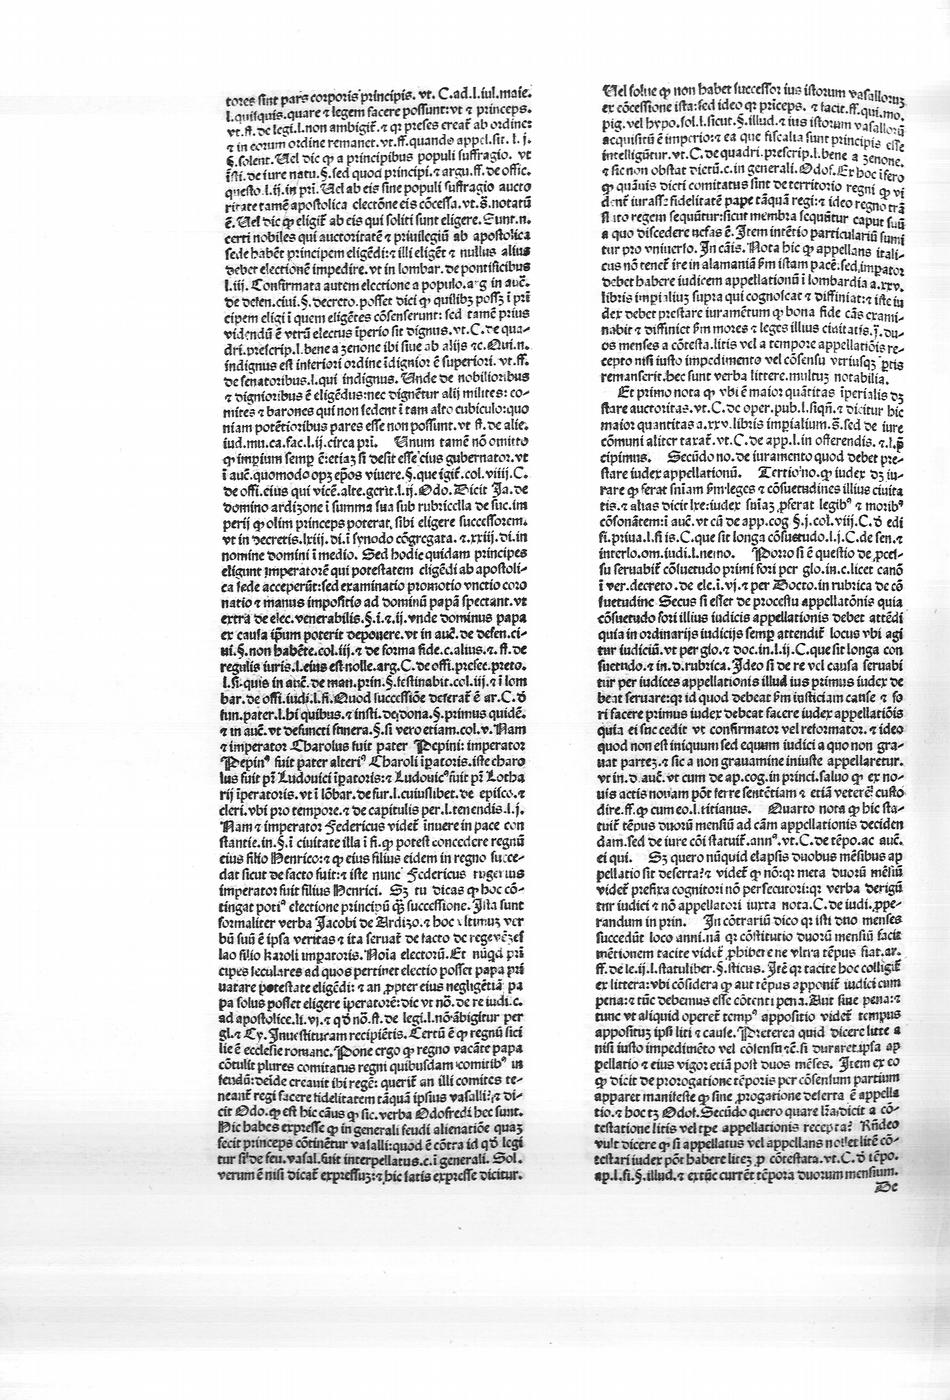 tores sint pars corporis principis. vt. C.ad.l.iul.maie.
l.quisquis.quare ⁊ legem facere possunt:vt ⁊ princeps.
vt.ff.de legi.l.non ambigit᷑.⁊ qꝛ preses creat᷑ ab ordine:
⁊ in eorum ordine remanet.vt.ff.quando appel.sit. l. j.
§.solent. Uel dic ꝙ a principibus populi suffragio. vt
insti.de iure natu.§.sed quod principi.⁊ argu.ff.de offic.
questo.l.ij.in pri. Uel ab eis sine populi suffragio aucto
ritate tamē apostolica electōne eis cōcessa.vt.s̄.notatū
ē. Uel dic ꝙ eligit᷑ ab eis qui soliti sunt eligere. Sunt.n.
certi nobiles qui auctoritatē ⁊ priuilegiū ab apostolica
sede habēt principem eligēdi:⁊ illi eligēt ⁊ nullus alius
debet electionē impedire.vt in lombar.de pontificibus
l.iii. Confirmata autem electione a populo.arg in auc̄.
de defen.ciui.§.decreto.posset dici ꝙ quilibꝫ possꝫ ī pri
cipem eligi ī quem eligētes cōsenserunt: sed tamē prius
vidēdū ē vtrū electus īperio sit dignus.vt.C.de qua-
dri.prescrip.l.bene a zenone ibi siue ab alijs ⁊c.Qui.n.
indignus est inferiori ordine īdignior ē superiori. vt.ff.
de senatoribus.l.qui indignus. Unde de nobilioribus
⁊ dignioribus ē eligēdus:nec dignētur alij milites: co-
mites ⁊ barones qui non sedent ī tam alto cubiculo:quo
niam potētioribus pares esse non possunt.vt ff.de alie.
iud.mu.ca.fac.l.ij.circa pri. Unum tamē nō omitto
ꝙ imꝑium semꝑ ē:etiaꝫ si desit esse eius gubernator.vt
ī auc̄.quomodo opꝫ epōs viuere.§.que igit᷑.col.viiij.C.
de offi.eius qui vicē.alte.gerit.l.ij.Odo.Dicit Ja.de
domino ardizone ī summa sua sub rubricella de suc.im
perij ꝙ olim princeps poterat, sibi eligere successorem.
vt in decretis.lxiij.di.ī synodo cōgregata. ⁊.xxiij.di.in
nomine domini ī medio. Sed hodie quidam principes
eligunt imperatorē qui potestatem eligēdi ab apostoli-
ca sede acceperūt:sed examinatio promotio vnctio coro
natio ⁊ manus impositio ad dominū papā spectant.vt
extra de elec.venerabilis.§.i.⁊.ij.vnde dominus papa
ex causa ip̄um poterit deponere.vt in auc̄.de defen.ci-
ui.§.non habēte.col.iij.⁊ de forma fide.c.alius.⁊.ff.de
regulis iuris.l.eius est nolle.arg.C.de offi.prefec.preto.
l.fi.quis in auc̄.de man.prin.§.festinabit.col.iij.⁊ ī lom
bar.de offi.iudi.l.fi.Quod successiōe deferat᷑ ē ar.C.ꝺ
fun.pater.l.hi quibus.⁊ insti.de dona.§.primus quidē.
⁊ in auc̄.vt defuncti funera.§.si vero etiam.col.v.Nam
⁊ imperator Charolus fuit pater Pepini: imperator
Pepinꝰ fuit pater alteriꝰ Charoli īpatoris.iste charo
lus fuit pr̄ Ludouici īpatoris:⁊ Ludouicꝰ fuit pr̄ Lotha
rij īperatoris.vt ī lōbar.de fur.l.cuiuslibet.de episco.⁊
cleri.vbi pro tempore.⁊ de capitulis per.l.tenendis.l.j.
Nam ⁊ imperator Federicus videt᷑ innuere in pace con
stantie.in.§.ī ciuitate illa ī fi.ꝙ potest concedere regnū
eius filio Henrico:⁊ ꝙ eius filius eidem in regno succe-
dat sicut de facto fuit:⁊ iste nunc Federicus
imperator fuit filius Henrici. Sꝫ tu dicas ꝙ hoc cō-
tingat potiꝰ electione principū ꝗ̄ꝫ successione. Ista sunt
formaliter verba Jacobi de Ardizo.⁊ hoc vltimuꝫ ver
bū suū ē ipsa veritas ⁊ ita seruat᷑ de facto de
lao filio Karoli imꝑatoris.Noīa electorū.Et nūqd pri
cipes seculares ad quos pertinet electio posset papa pri
uatare potestate eligēdi: ⁊ an ꝓpter eius negligētiā pa
pa solus posset eligere īperatorē:dic vt nō.de re iudi.c.
ad apostolice.li.vj.⁊ qꝺ nō.ff.de legi.l.nō ambigitur per
gl.⁊ Cy. Inuestituram recipiētis. Certū ē ꝙ regnū sici
lie ē ecclesie romane. Pone ergo ꝙ regno vacāte papa
cōtulit plures comitatus regni quibusdam comitibꝰ in
feudū:deīde creauit ibi regē: querit᷑ an illi comites te-
neant᷑ regi facere fidelitatem tāquā ipsius vasalli?⁊ di-
cit Odo.ꝙ est hic cāus ꝙ sic.verba Odofredi hec sunt.
Hic habes expresse ꝙ in generali feudi alienatiōe quaꝫ
fecit princeps cōtinētur vasalli:quod ē cōtra id qꝺ legi
tur si de feu.vasal.fuit interpellatus.c.ī generali. Sol.
verum ē nisi dicat᷑ expressuꝫ:⁊ hic satis expresse dicitur.
Uel solue ꝙ non habet successor ius istorum vasalloruꝫ
ex cōcessione ista:sed ideo qꝛ prīceps. ⁊ facit.ff.qui.mo.
pig.vel hypo.sol.l.sicut.§.illud.⁊ ius istorum vasallorū
acquisitū ē imperio:⁊ ea que fiscalia sunt principis esse
intelligūtur.vt.C.de quadri.prescrip.l.bene a zenone.
⁊ sic non obstat dictū.c.in generali. Odof.Ex hoc īfero
ꝙ quāuis dicti comitatus sint de territorio regni ꝙ vi
dent᷑ iurasse fidelitatē pape tāquā regi:⁊ ideo regno trā
sl ito regem sequūtur:sicut membra sequūtur caput suū
a quo discedere nefas ē. Item intētio particulariū sumi
tur pro vniuerso. In cāis. Nota hic ꝙ appellans itali-
cus nō tenet᷑ ire in alamaniā ẜm istam pacē:sed impator
debet habere iudicem appellationū ī lombardia a.xxv.
libris imꝑialiuꝫ supra qui cognoscat ⁊ diffiniat:⁊ iste iu
dex debet prestare iuramētum ꝙ bona fide cās exami-
nabit ⁊ diffiniet ẜm mores ⁊ leges illius ciuitatis.ī.du-
os menses a cōtesta.litis vel a tempore appellatiōis re-
cepto nisi iusto impedimento vel cōsensu vtriusꝗꝫ ꝑtis
remanserit.hec sunt verba littere.multuꝫ notabilia.
Et primo nota ꝙ vbi ē maior quātitas īperialis dꝫ
stare auctoritas.vt.C.de oper.pub.l.siqn̄.⁊ dicitur hic
maior quantitas a.xxv.libris imꝑialium.s̄.sed de iure
cōmuni aliter taxat᷑.vt.C.de app.l.in offerendis.⁊.l.p̄
cipimus. Secūdo no.de iuramento quod debet pre-
stare iudex appellationū. Tertio no.ꝙ iudex dꝫ iu-
rare ꝙ ferat sn̄iam ẜm leges ⁊ cōsuetudines illius ciuita
tis.⁊ alias dicit lꝛe:iudex sn̄iaꝫ ꝓferat legibꝰ ⁊ moribꝰ
cōsonātem:ī auc̄.vt cū de app.cog §.j.col.viij.C.ꝺ edi
fi.priua.l.fi is.C.que sit longa cōsuetudo.l.j.C.de sen.⁊
interlo.om.iudi.l.nemo. Porro si ē questio de ꝓcel-
su seruabit᷑ cōsuetudo primi fori per glo.in.c.licet canō
ī ver.decreto.de ele.ī.vj.⁊ per Docto.in rubrica de cō
suetudine Secus si esset de processu appellatōnis quia
cōsuetudo fori illius iudicis appellationis debet attēdi
quia in ordinarijs iudicijs semꝑ attendit᷑ locus vbi agi
tur iudiciū.vt per glo.⁊ doc.in.l.ij.C.que sit longa con
suetudo.⁊ in.d.rubrica. Ideo si de re vel causa seruabi
tur per iudices appellationis illud ius primus iudex de
beat seruare:qꝛ id quod debeat ẜm iusticiam cause ⁊ fo
ri facere primus iudex debeat facere iudex appellatiōis
quia ei succedit vt confirmator vel reformator.⁊ ideo
quod non est iniquum sed equum iudici a quo non gra-
uat parteꝫ.⁊ sic a non grauamine iniuste appellaretur.
vt in.d.auc̄.vt cum de ap.cog.in princi.saluo ꝙ ex no-
uis actis nouam pōt ferre sentētiam ⁊ etiā veterē: custo
dire.ff.ꝙ cum eo.l.titianus. Quarto nota ꝙ hic sta-
tuit᷑ tēpus duorū mensiū ad cām appellationis deciden
dam.sed de iure cōi statuit᷑.annꝰ.vt.C.de tēpo.ac auc̄.
ei qui. Sꝫ quero nūquid elapsis duobus mēsibus ap
pellatio sit deserta?⁊ videt᷑ ꝙ nō:qꝛ meta duorū mēsiū
videt᷑ prefixa cognitori nō persecutori:qꝛ verba derigū
tur iudici ⁊ nō appellatori iuxta nota.C.de iudi.ꝓpe-
randum in prin. In cōtrariū dico qꝛ isti duo menses
succedūt loco anni.nā qꝛ cōstitutio duorū mensiū facit
mētionem tacite videt᷑ ꝓhibere ne vltra tēpus fiat.ar.
ff.de le.ij.l.statuliber.§.sticus. Itē qꝛ tacite hoc colligit᷑
ex littera:vbi cōsidera ꝙ aut tēpus apponit᷑ iudici cum
pena:⁊ tūc debemus esse cōtenti pena.Aut sine pena:⁊
tunc vt aliquid operet᷑ tempꝰ appositio videt᷑ tempus
appositum ipsi liti ⁊ cause. Preterea quid dicere litte a
nisi iusto impedimēto vel cōsensu ⁊c̄.si duraret.ipsa ap
pellatio ⁊ eius vigor etiā post duos mēses. Item ex eo
ꝙ dicit de prorogatione tēporis per cōsensum partium
apparet manifeste ꝙ sine ꝓrogatione deserta ē appella
tio.⁊ hoc tꝫ Odof.Secūdo quero quare lr̄a dicit a cō-
testatione litis vel tꝑe appellationis recepta? Rn̄deo
vult dicere ꝙ si appellatus vel appellans nollet litē cō-
testari iudex pōt habere liteꝫ ꝓ cōtestata.vt.C.ꝺ tēpo.
ap.l.fi.§.illud.⁊ extūc curret᷑ tēpora duorum mensium.
De